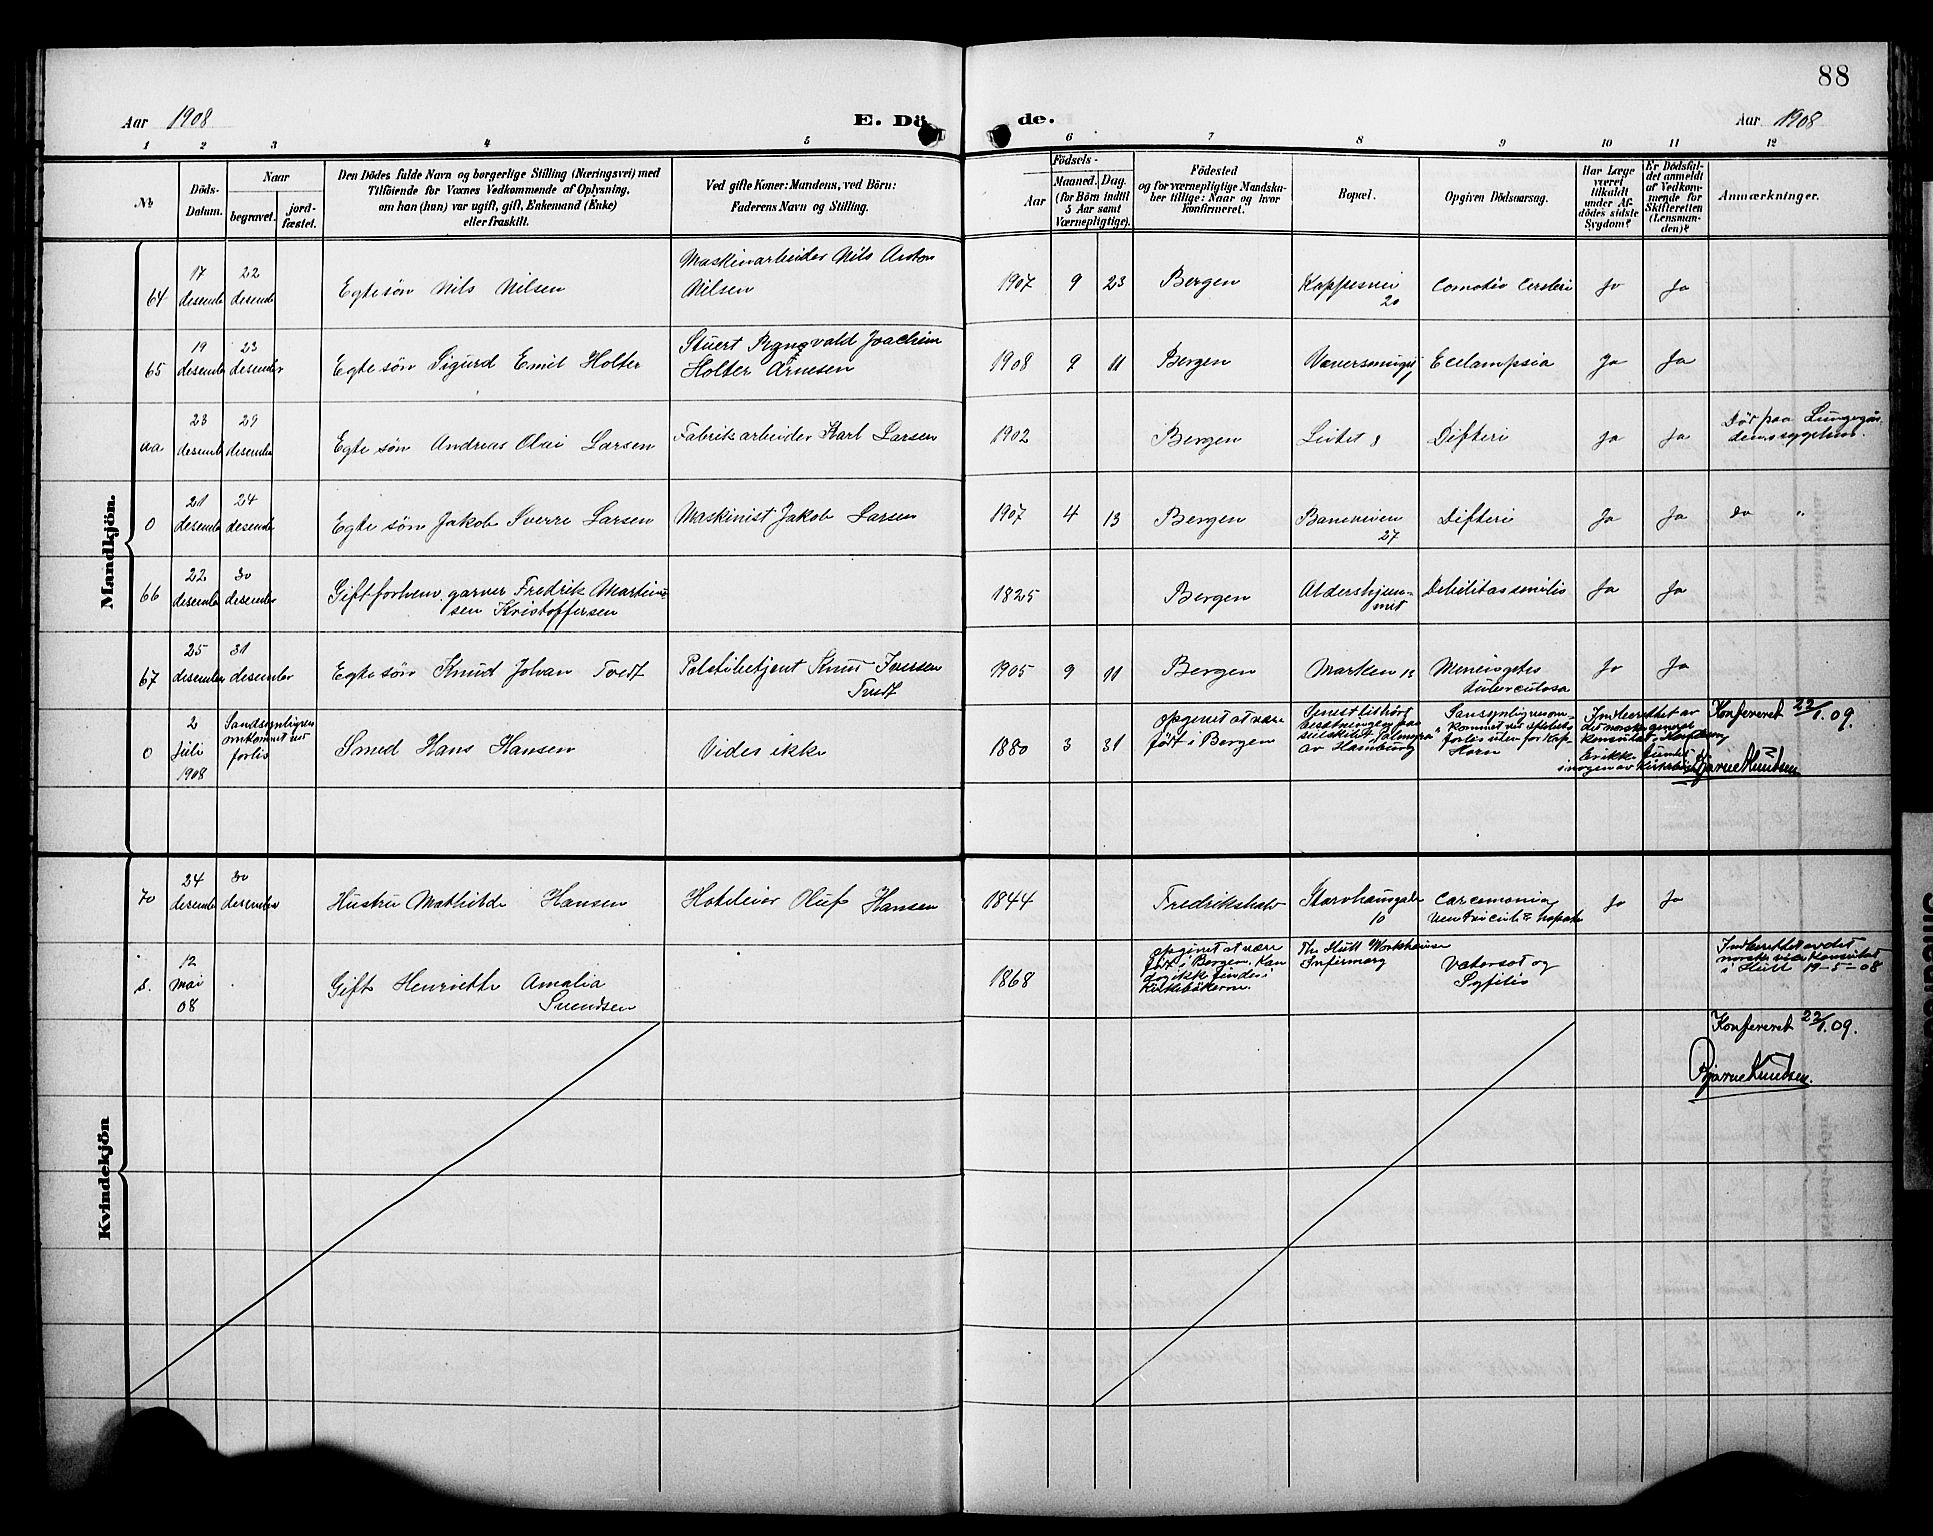 88
Aar 1908
E. Dö
de.
Aar 1908
1 2 3 4 5 6 7 8 9 10 11 12
No
Döds-
Datum.
Naar
begravet.
jord-
fæstet.
Den Dödes fulde Navn og borgerlige Stilling (Næringsvei) med
Tilföiende for Voxnes Vedkommende af Oplysning,
om han (hun) var ugift, gift, Enkemand (Enke)
eller fraskilt.
Ved gifte Koner: Mandens, ved Börn:
Faderens Navn og Stilling.
Födsels-
Aar
Maaned. Dag.
(for Börn indtil
5 Aar samt
Værnepligtige).
Födested
og for værnepligtige Mandska-
ber tillige: Naar og hvor
konfirmeret.
Bopæl.
Opgiven Dödsaarsag.
Har Læge
været
tilkaldt
under Af-
dödes sidste
Sygdom?
Er Dödsfal-
det anmeldt
af Vedkom-
mende for
Skifteretten
(Lensman-
den)?
Anmærkninger.
Mandkjön.
64
17
desembr
22
desembr
Egte sön Nils Nilsen
Maskinarbeider Nils Anton
Nilsen
1907 9 23
Bergen
20
Jo
Ja
65
19
desember
23
desember
Egte sön Sigurd Emil Holter
Stuert Rognvald Joachim
Holter Arnesen
1908 9 11
Bergen
Eclampsia
Ja
Ja
aa
23
desember
29
desember
Egte sön Andreas Olai Larsen
Fabrikarbeider Karl Larsen
1902
Bergen
Difteri
Ja
Ja
Död paa Lungegaar
dens sygehus.
0
21
desember
24
desember
Egte sön Jakob Sverre Larsen
Maskinist Jakob Larsen
1907 4 13
Bergen
Baneveien
27
Difteri
Ja
Ja
do "
66
22
desember
30
desember
Gift forhenv. garver Fredrik Martin
sen Kristoffersen
1825
Bergen
Aldershjem-
met
Debilitas senilis
Ja
Ja
67
25
desember
31
desember
Egte sön Knud Johan Tvedt
Politibetjent Knut Iversen
Tvedt
1905 9 11
Bergen
Marken
tuberculosa
Jo
Ja
0
2
Juli
1908
Sandsynligvis
omkommet ved
forlis
Smed Hans Hansen
Vides ikke
1880 3 31
opgivet at være
født i Bergen
av Hamburg
forlis uten for Kap
Horn
Indberettet av
det norske general
konsulat i Hamburg
Er ikke fundet
i nogen av kirkebøk
Konfereret 22/1. 09.
Bjarne Knudsen
Kvindekjön
70
24
desember
30
desember
Hustru Mathilde Hansen
Hoteleier Oluf Hansen
1844
Fredrikshald
10
Jo
Ja
s.
12
Mai
08
Gift Henriette Amalia
Svendsen
1868
opgivet at være
født i Bergen. Kan
dog ikke findes i
Kirkebökerne.
The Hull Workhouse
Infirmary
Vatersot og
Syfilis
Indberettet av det
norske vice konsulat
i Hull 19-5-08
Konfereret 22/1. 09.
Bjarne Knudsen.